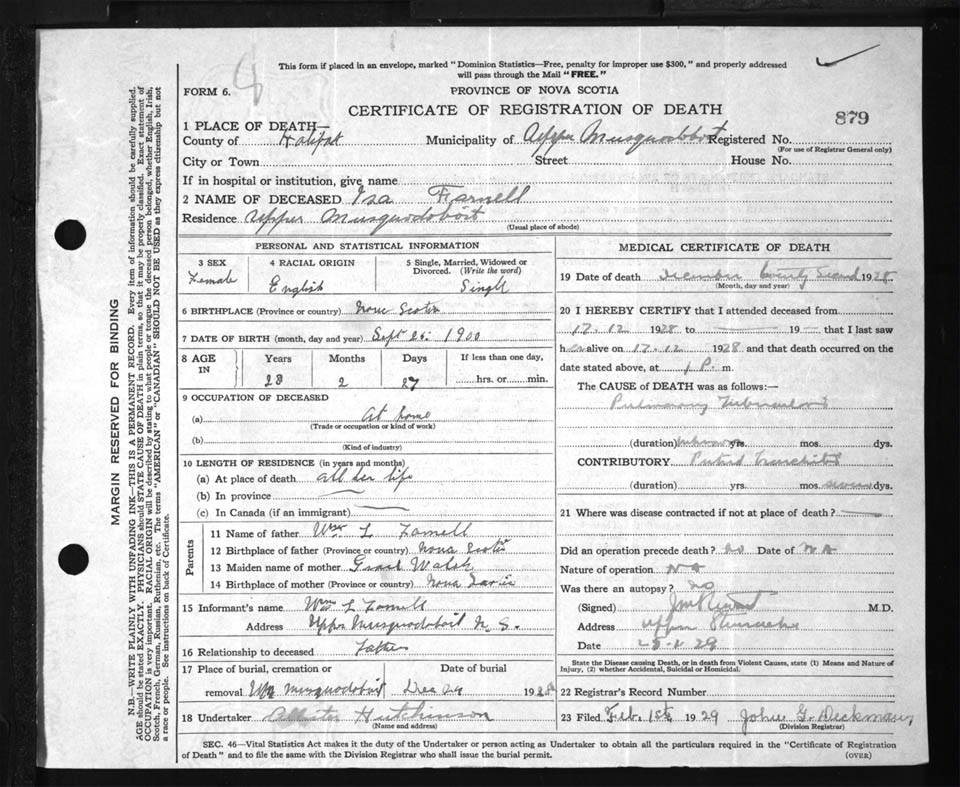 This form if placed in an envelope, marked "Dominion Statistics—Free, penalty for improper use $300," and properly addressed
will pass through the Mail "FREE."
FORM 6.
PROVINCE OF NOVA SCOTIA
CERTIFICATE OF REGISTRATION OF DEATH
879
1 PLACE OF DEATH—
County of Halifax Municipality of Upper Musquodoboit Registered No.
(For use of Registrar General only)
City or Town Street House No.
If in hospital or institution, give name
2 NAME OF DECEASED Isa Farnell
Residence Upper Musquodoboit
(Usual place of abode)
PERSONAL AND STATISTICAL INFORMATION
3 SEX 4 RACIAL ORIGIN 5 Single, Married, Widowed or Divorced. (Write the word)
Female English Single
6 BIRTHPLACE (Province or country) Nova Scotia
7 DATE OF BIRTH (month, day and year) Sept 25. 1900
8 AGE IN Years Months Days If less than one day,
28 2 27 hrs. or min.
9 OCCUPATION OF DECEASED
(a) At home
(Trade or occupation or kind of work)
(b)
(Kind of industry)
10 LENGTH OF RESIDENCE (in years and months)
(a) At place of death all her life
(b) In province
(c) In Canada (if an immigrant)
Parents
11 Name of father Wm L Farnell
12 Birthplace of father (Province or country) Nova Scotia
13 Maiden name of mother Walsh
14 Birthplace of mother (Province or country) Nova Scotia
15 Informant's name Wm L Farnell
Address Upper Musquodoboit N. S.
16 Relationship to deceased Father
17 Place of burial, cremation or Date of burial
removal Up Musquodoboit Dec 24 1928
18 Undertaker Hutchinson
(Name and address)
MEDICAL CERTIFICATE OF DEATH
19 Date of death December Twenty Second 1928
(Month, day and year)
20 I HEREBY CERTIFY that I attended deceased from
17.12 1928 to 19 that I last saw
her alive on 17.12 1928 and that death occurred on the
date stated above, at 1 P. m.
The CAUSE of DEATH was as follows:—
Pulmonary Tuberculosis
(duration) unknown yrs. mos. dys.
CONTRIBUTORY Putrid Bronchitis
(duration) yrs. mos. dys.
21 Where was disease contracted if not at place of death?
Did an operation precede death? no Date of
Nature of operation No
Was there an autopsy? no
(Signed) M.D.
Address Upper Stewiacke
Date
State the Disease causing Death, or in death from Violent Causes, state (1) Means and Nature of
Injury, (2) whether Accidental, Suicidal or Homicidal.
22 Registrar's Record Number
23 Filed Feb. 1st 1929 John G. Deckman
(Division Registrar)
SEC. 46—Vital Statistics Act makes it the duty of the Undertaker or person acting as Undertaker to obtain all the particulars required in the "Certificate of Registration
of Death" and to file the same with the Division Registrar who shall issue the burial permit. (OVER)
MARGIN RESERVED FOR BINDING
N.B.—WRITE PLAINLY WITH UNFADING INK—THIS IS A PERMANENT RECORD. Every item of information should be carefully supplied.
AGE should be stated EXACTLY. PHYSICIANS should STATE CAUSE OF DEATH in plain terms, so that it may be properly classified. Exact statement of
OCCUPATION is very important. RACIAL ORIGIN will be described by stating to what people or tongue the deceased person belonged, whether English, Irish,
Scotch, French, German, Russian, Ruthenian, etc. The terms "AMERICAN" or "CANADIAN" SHOULD NOT BE USED as they express citizenship but not
a race or people. See instructions on back of Certificate.